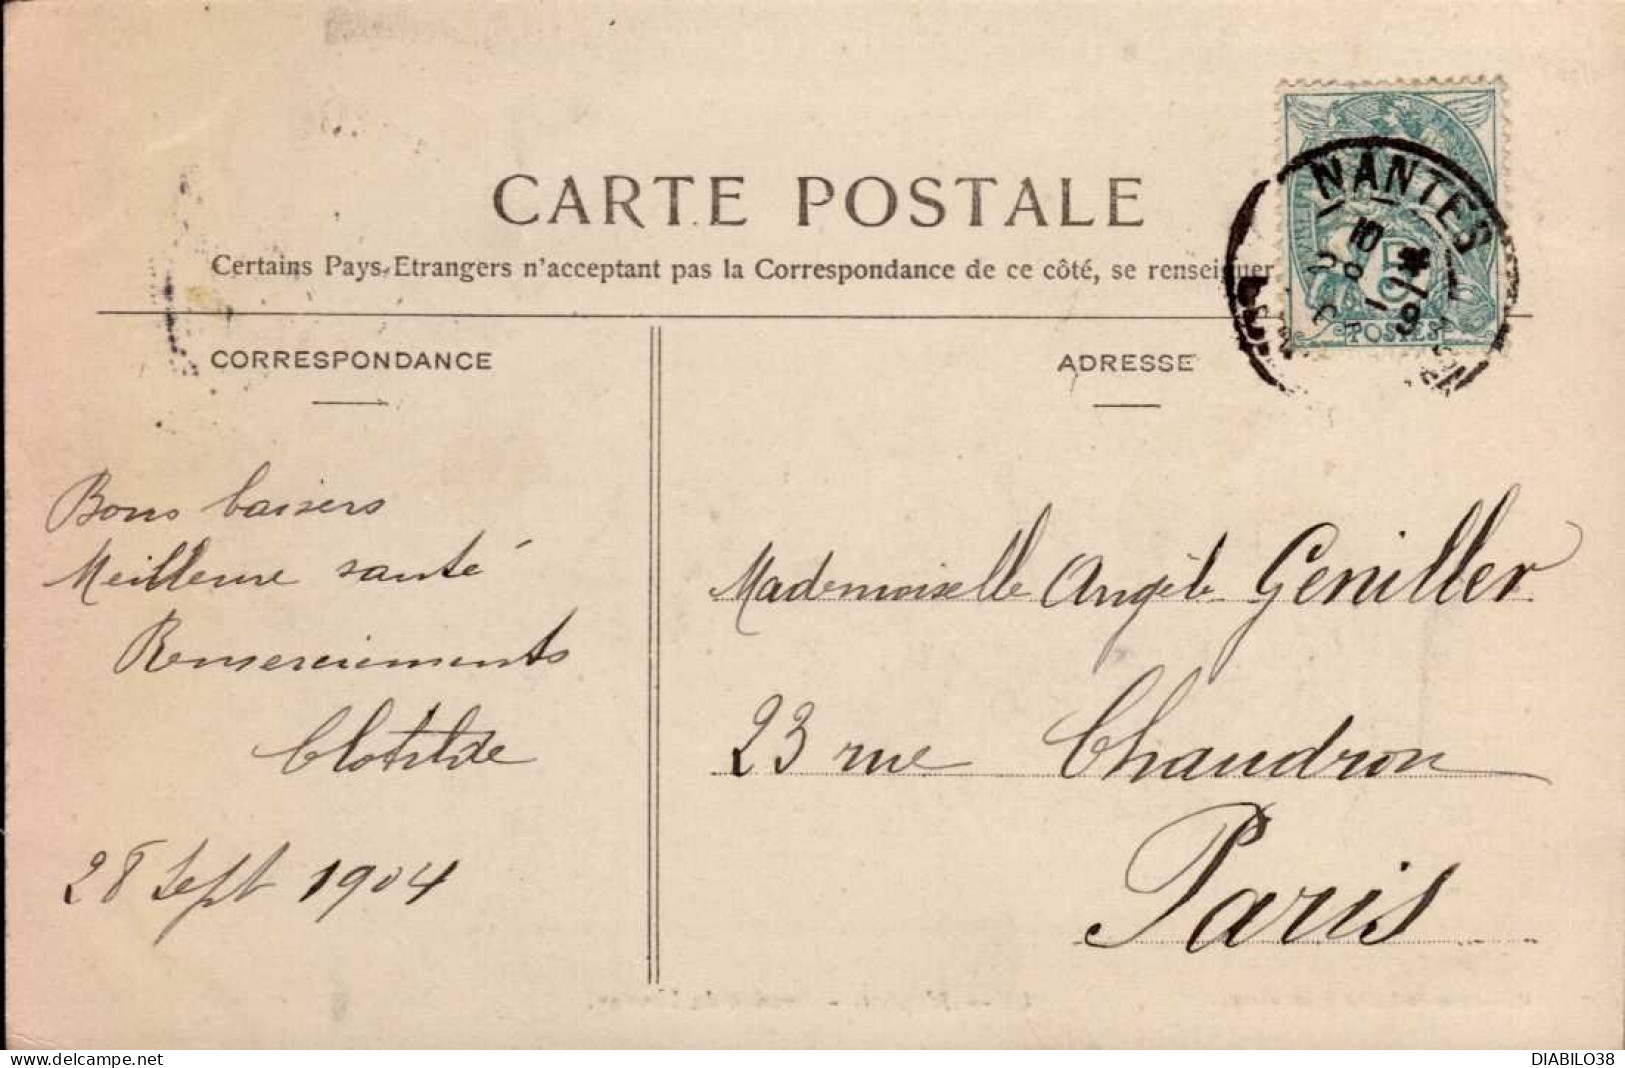 CARTE POSTALE
Certains Pays Etrangers n'acceptant pas la Correspondance de ce côté, se renseigner
CORRESPONDANCE
ADRESSE
NANTES
POSTES
Bons baisers
Meilleure santé
Remerciements
Clotilde
28 Sept 1904
Mademoiselle Angèle Geniller
23 rue Chaudron
Paris
DIABILO38